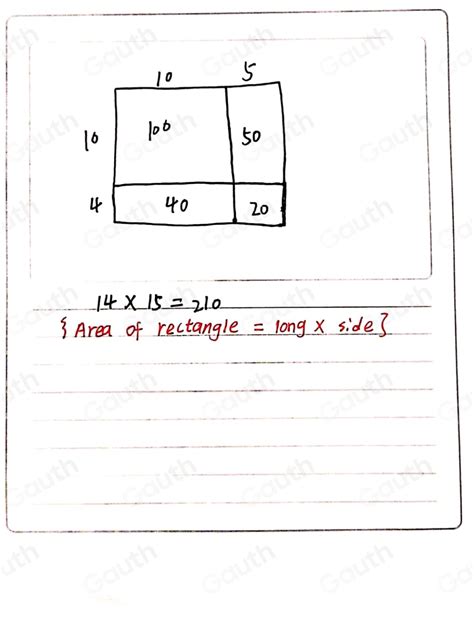 10 5
10 100 50
4 40 20
14 × 15 = 210
{Area of rectangle = long × side}